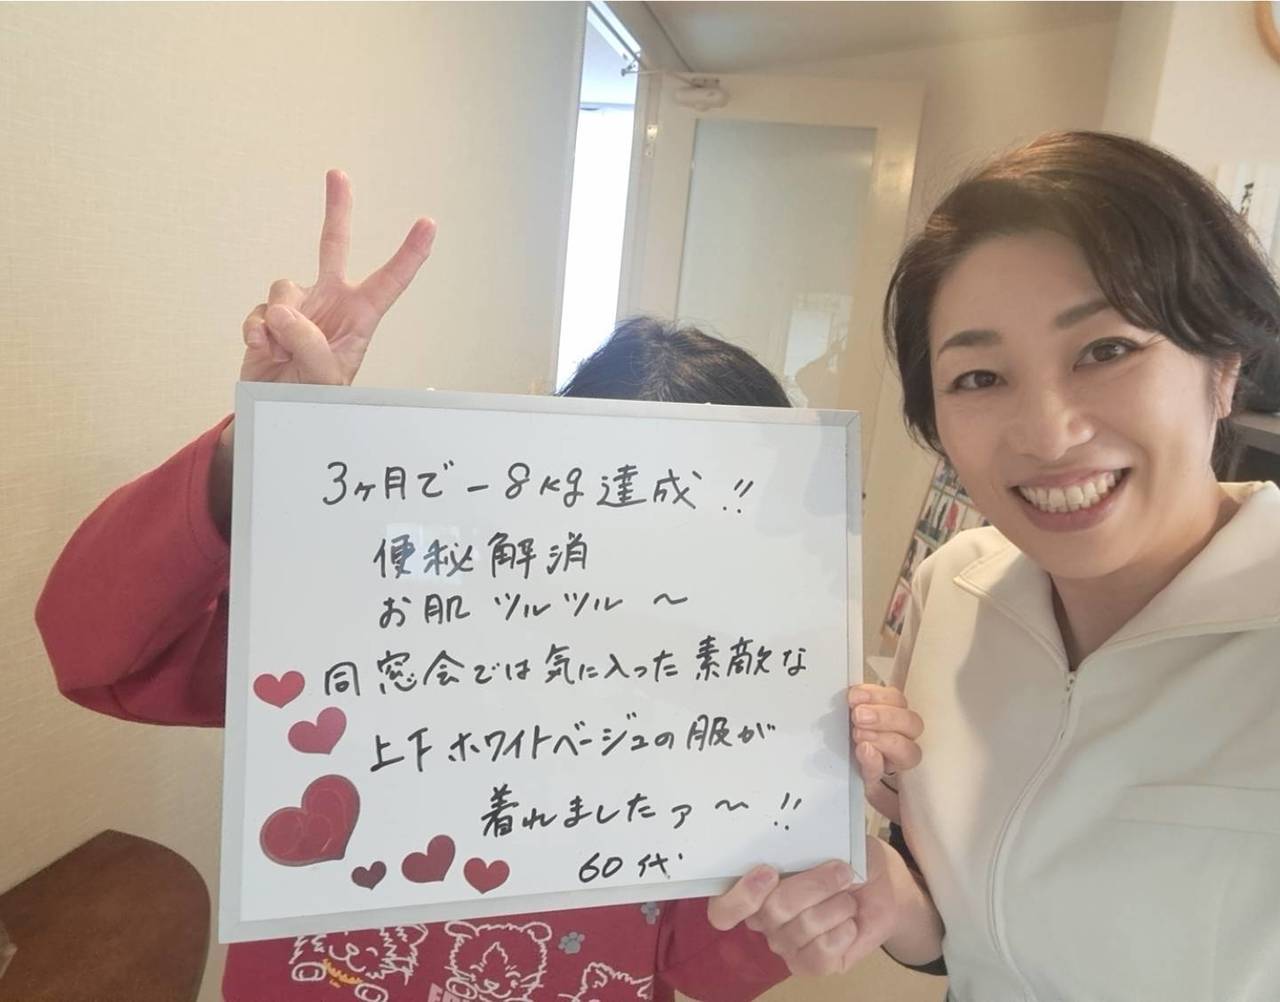 3ヶ月で-8kg達成!!
便秘解消
お肌ツルツル〜
同窓会では気に入った素敵な
上下ホワイトベージュの服が
着れましたァ〜!!
60代